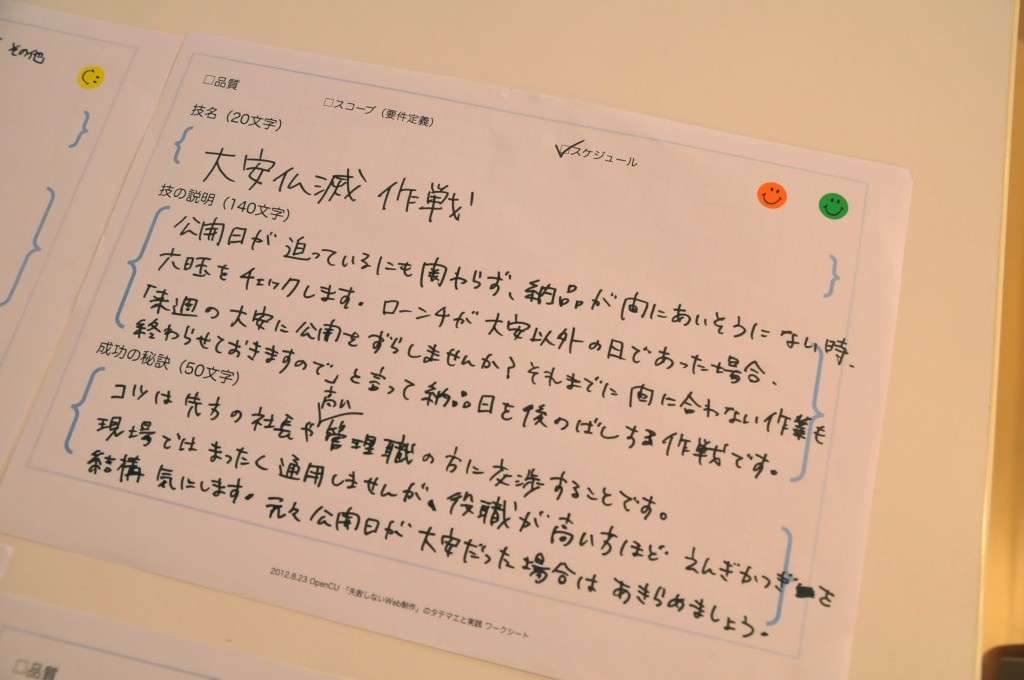 その他
□品質
□スコープ（要件定義）
□スケジュール
技名（20文字）
大安仏滅 作戦
技の説明（140文字）
公開日が迫っているにも関わらず、納品が間にあいそうにない時、
六曜をチェックします。ローンチが大安以外の日であった場合、
「来週の大安に公開をずらしませんか？それまでに間に合わない作業も
終わらせておきますので」と言って納品日を後のばしする作戦です。
成功の秘訣（50文字）
高い
コツは先方の社長や管理職の方に交渉することです。
現場ではまったく通用しませんが、役職が高い方ほどえんぎかつぎを
結構気にします。元々公開日が大安だった場合はあきらめましょう。
2012.8.23 OpenCU 「失敗しないWeb制作」のタテマエと実践 ワークシート
□品質